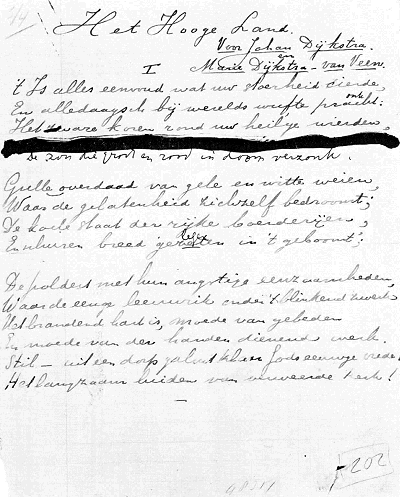 1/4
Het Hooge Land.
Voor Johan Dijkstra.
en
Marie Dijkstra - van Veen.
I
't Is alles eenvoud wat uw stoerheid sierde,
En alledaagsch bij werelds wufte pracht:
Het zware koren rond uw heil'ge wierden,
De zon die groot en rood in doom verzonk.
Grelle overdaad van gele en witte weien,
Waar de gelatenheid zichzelf bedroomt;
De koele staat der rijke boerderijen,
En schuren breed in 't geboomt;
De polders met hun angstige eenzaamheden,
Waar de eenge leeuwrik onder 't blinkend zwerk
Het brandend hart is, moede van gebeden
En moede van der handen dienend werk.
Stil - uit een dorp galmt klaar Gods eeuwge vrede:
Het langzaam luiden van verweerde kerk!
202